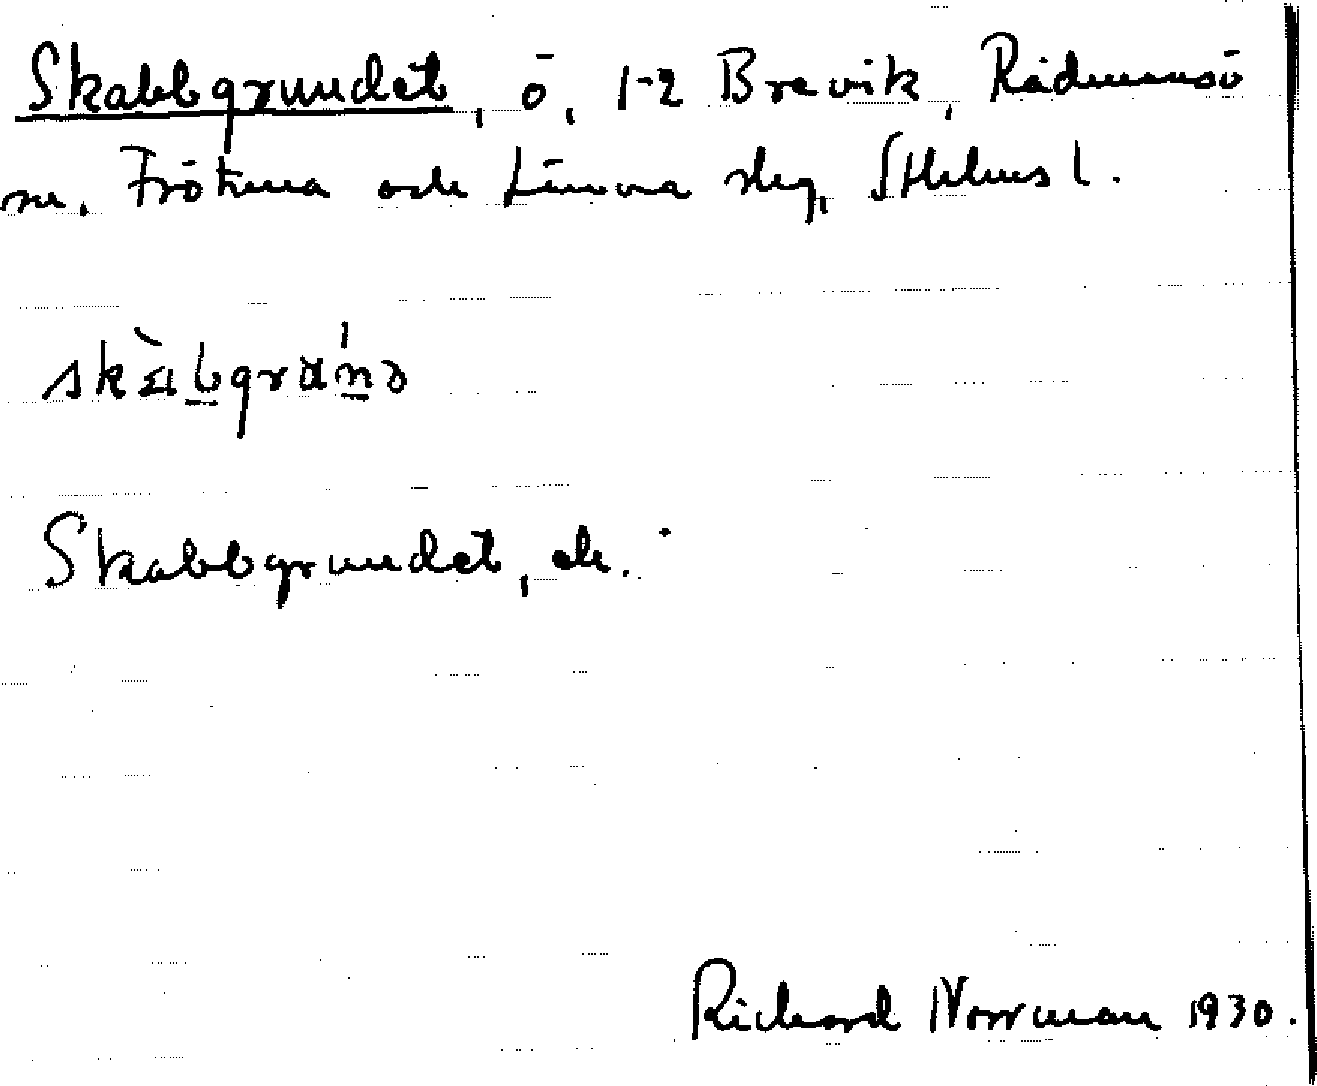 Skabbgrundet, ö, 1-2 Brevik, Rådmansö
sn, Frötuna och Länna slg, Sthlms l.
Skabbgrundet, ek.
Richard Norrman 1930.